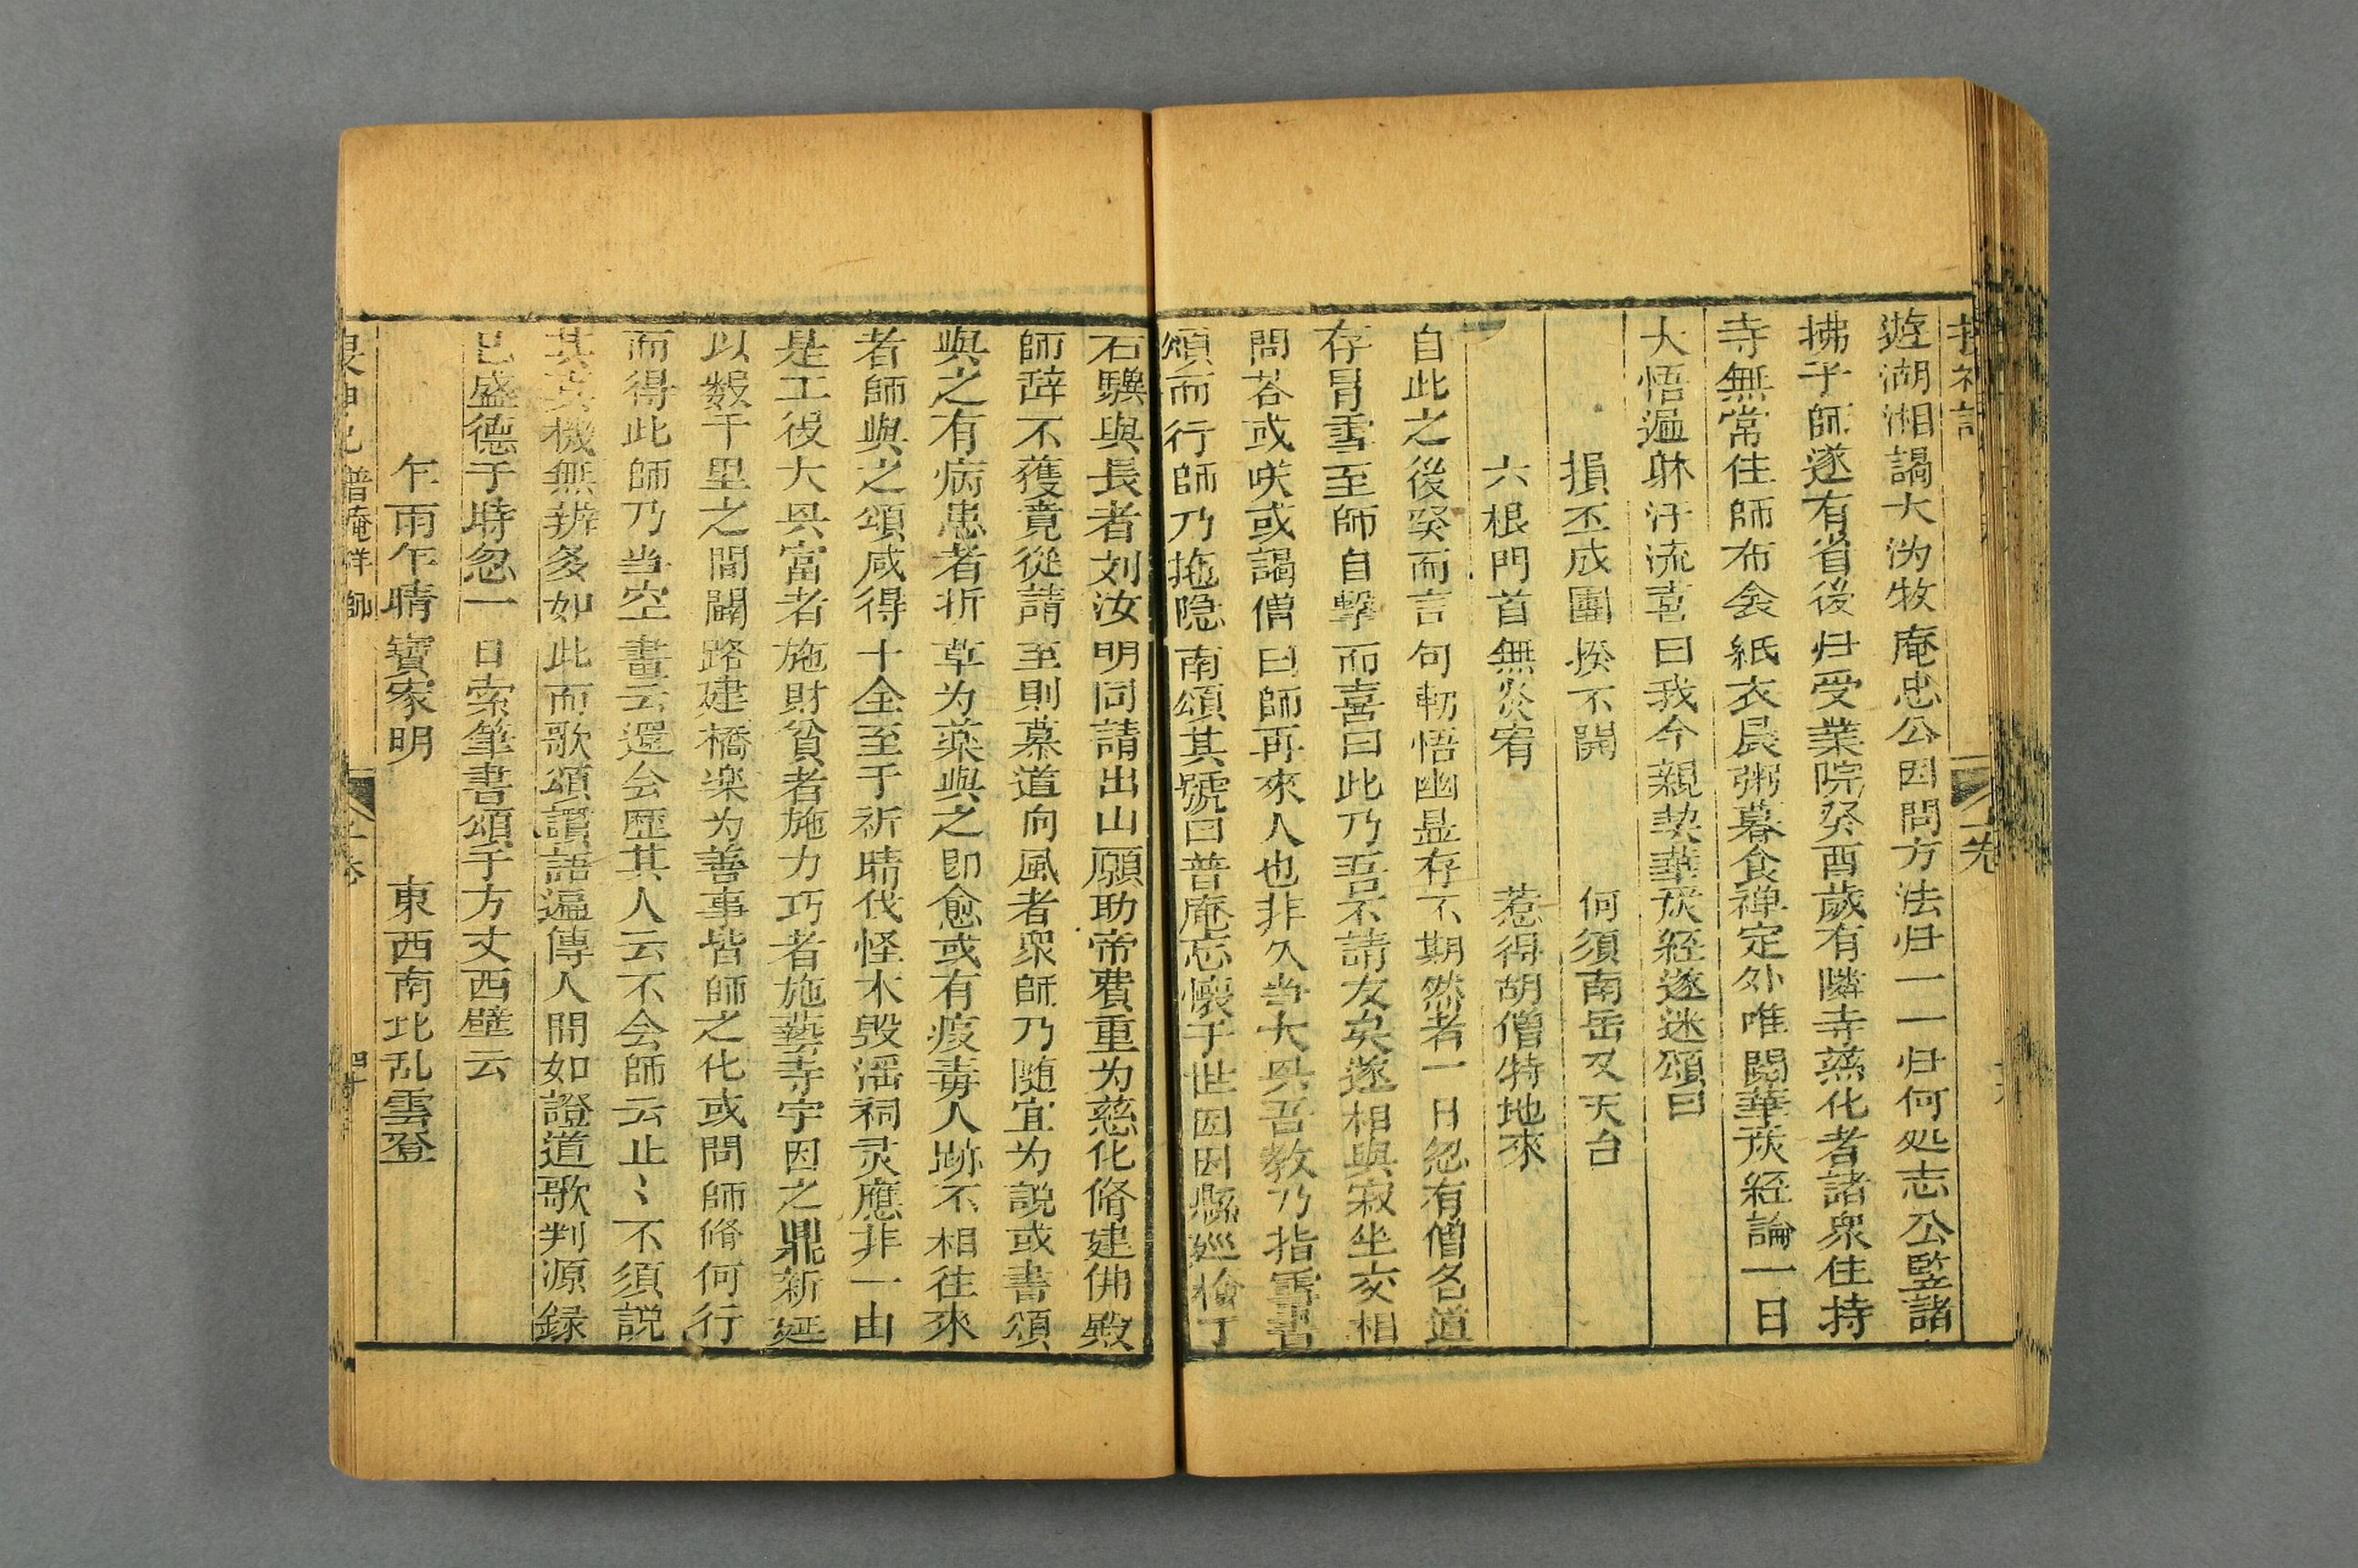 遊湖湘謁大溈牧庵忠公因問方法归一一归何処志公竪諸
拂子師遂有省後归受業院癸酉歲有隣寺蒸化者諸衆住持
寺無常住師布衾紙衣晨粥暮食禅定外唯閲華嚴経論一日
大悟遍躰汗流喜曰我今親契華嚴経遂迷頌曰
損丕成團挨不開 何須南岳又天台
六根門首無炎宥 惹得胡僧特地來
自此之後癸而言句軔悟幽显存不期然者一日忽有僧名道
存冐雪至師自擊而喜曰此乃吾不請友矣遂相與寂坐交相
問荅或咲或謁僧曰師再來人也非久当大具吾教乃指雪書
頌而行師乃拖隐南頌其號曰普庵忘懷于世因因縣廵檢丁
石驥與長者刘汝明同請出山願助帝費重为慈化脩建佛殿
師辞不獲竟從請至則慕道向風者衆師乃随宜为説或書頌
與之有病患者折草为薬與之即愈或有疫毒人跡不相往來
者師與之頌咸得十全至于祈晴伐怪木毁滛祠灵應非一由
是工役大具富者施財貧者施力巧者施藝寺宇因之鼎新延
以数千里之間闢路建橋楽为善事皆師之化或問師脩何行
而得此師乃当空畫云還会歴其人云不会師云止〻不須説
其玄機無辨多如此而歌頌讃語遍傳人間如證道歌判源録
已盛德于時忽一日索筆書頌于方丈西壁云
乍雨乍晴寳家明 東西南北乱雲登
普庵祥師